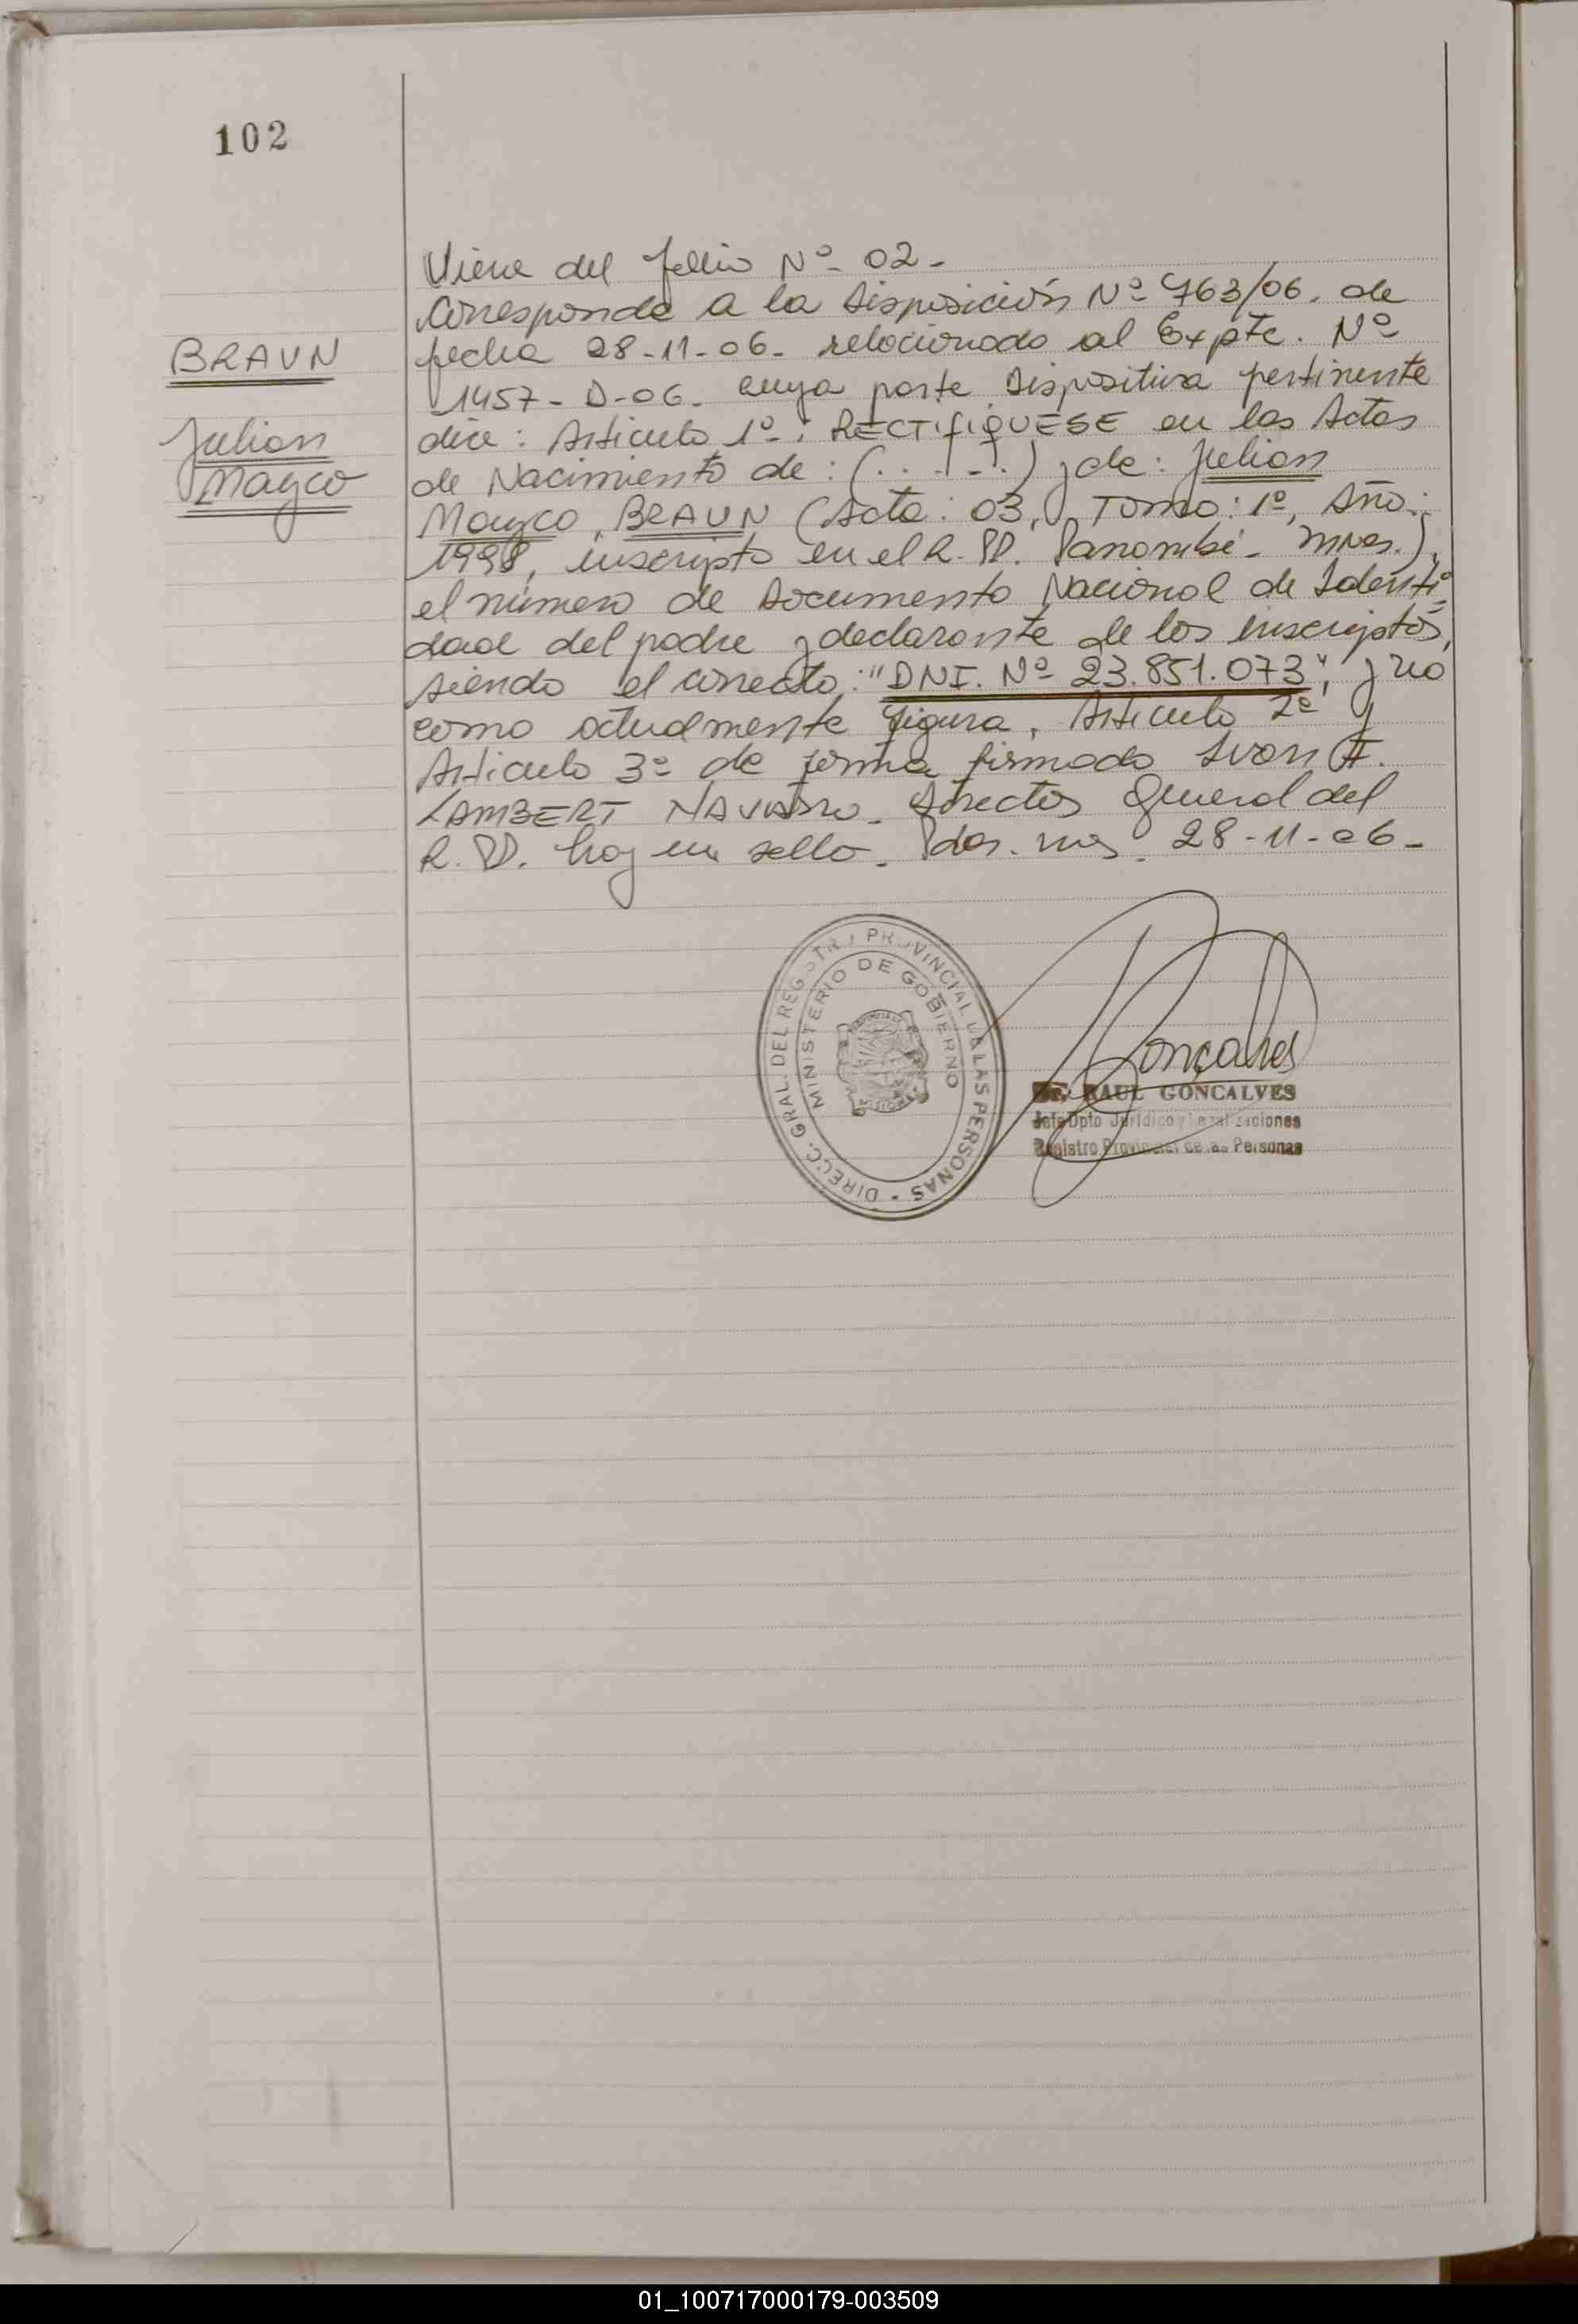 102
BRAUN
Julian
Mayco
Viene del folio Nº 02.-
Corresponde a la Disposición Nº 763/06. de
fecha 28-11-06. relacionado al Expte. Nº
1457-D-06. cuya parte dispositiva pertinente
dice: Articulo 1º: RECTIFIQUESE en las Actas
de Nacimiento de: (......) y de: Julian
Mayco, BRAUN (Acta: 03, Tomo: 1º, Año:
1998, inscripto en el R.PP. Panambí - Mnes.),
el número de Documento Nacional de Identi
dad del padre y declarante de los inscriptos,
siendo el correcto: "DNI. Nº 23.851.073", y no
como actualmente figura. Articulo 2º y
Articulo 3º de forma firmado Ivan A.
LAMBERT NAVARRO. Director General del
R.PP. hay un sello. Pdas. mes. 28-11-06-
DIRECC. GRAL. DEL REGISTRO PROVINCIAL DE LAS PERSONAS -
MINISTERIO DE GOBIERNO
Goncalves
Dr. RAUL GONCALVES
Jefe Dpto Jurídico y Legalizaciones
Registro Provincial de las Personas
01_100717000179-003509